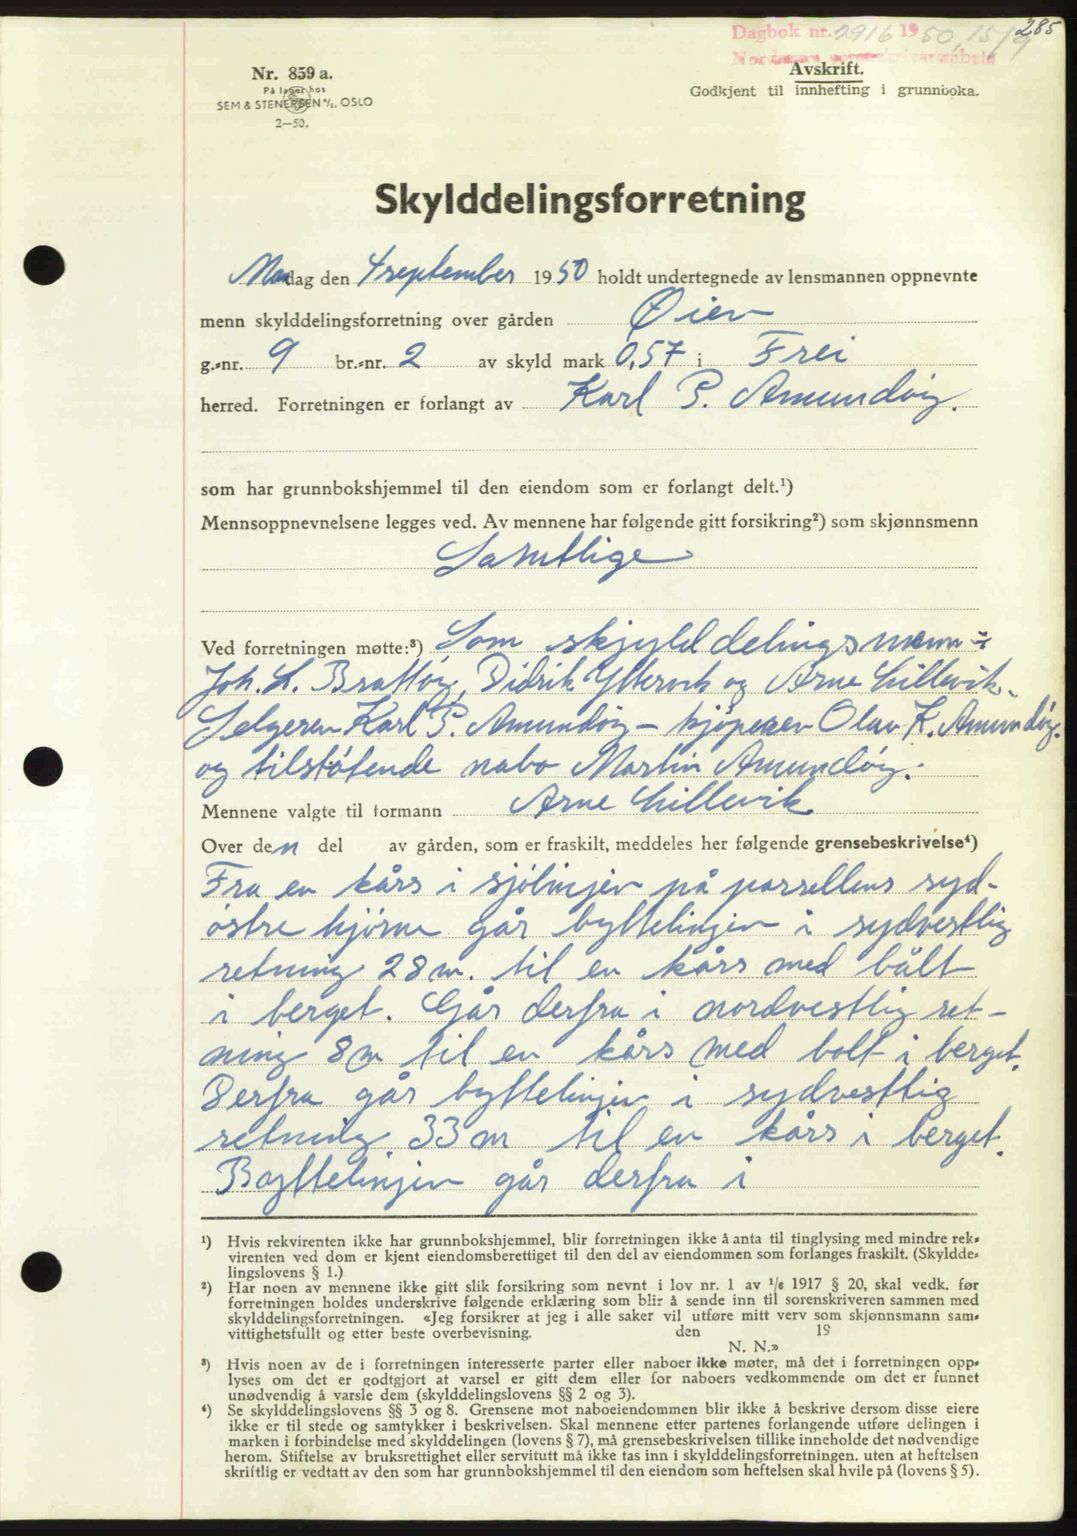 285
Dagbok nr. 2916 1950, 15/9
Nordmøre sorenskriverembete
Nr. 859 a.
På lager hos
SEM & STENERSEN A/S, OSLO
2—50.
Avskrift.
Godkjent til innhefting i grunnboka.
Skylddelingsforretning
Mandag den 4 september 1950 holdt undertegnede av lensmannen oppnevnte
menn skylddelingsforretning over gården Øien
g.-nr. 9 br.-nr. 2 av skyld mark 0,57 i Frei
herred. Forretningen er forlangt av Karl P. Amundøy.
som har grunnbokshjemmel til den eiendom som er forlangt delt.¹)
Mennsoppnevnelsene legges ved. Av mennene har følgende gitt forsikring²) som skjønnsmenn
Samtlige
Ved forretningen møtte:³) Som skjylddelingsmenn:
Joh. L. Brattøy, Didrik Yttervik og Arne Lillevik.
Selgeren Karl P. Amundøy – kjøperen Olav K. Amundøy.
og tilstøtende nabo Martin Amundøy.
Mennene valgte til formann Arne Lillevik
Over den del av gården, som er fraskilt, meddeles her følgende grensebeskrivelse⁴)
Fra en kårs i sjølinjen på parsellens syd-
østre hjørne går byttelinjen i sydvestlig
retning 28 m. til en kårs med bålt
i berget. Går derfra i nordvestlig ret-
ning 8 m til en kårs med bolt i berget.
Derfra går byttelinjen i sydvestlig
retning 33 m til en kårs i berget.
Byttelinjen går derfra i
¹) Hvis rekvirenten ikke har grunnbokshjemmel, blir forretningen ikke å anta til tinglysing med mindre rek-
virenten ved dom er kjent eiendomsberettiget til den del av eiendommen som forlanges fraskilt. (Skyldde-
lingslovens § 1.)
²) Har noen av mennene ikke gitt slik forsikring som nevnt i lov nr. 1 av 1/6 1917 § 20, skal vedk. før
forretningen holdes underskrive følgende erklæring som blir å sende inn til sorenskriveren sammen med
skylddelingsforretningen. «Jeg forsikrer at jeg i alle saker vil utføre mitt verv som skjønnsmann sam-
vittighetsfullt og etter beste overbevisning. den 19
N. N.»
³) Hvis noen av de i forretningen interesserte parter eller naboer ikke møter, må det i forretningen opp-
lyses om det er godtgjort at varsel er gitt dem eller for naboers vedkommende om det er funnet
unødvendig å varsle dem (skylddelingslovens §§ 2 og 3).
⁴) Se skylddelingslovens §§ 3 og 8. Grensene mot naboeiendommen blir ikke å beskrive dersom disse eiere
ikke er til stede og samtykker i beskrivelsen. Skal mennene etter partenes forlangende utføre delingen i
marken i forbindelse med skylddelingen (lovens § 7), må grensebeskrivelsen tillike inneholde det nødvendige
herom. Stiftelse av bruksrettighet eller servitutt må ikke tas inn i skylddelingsforretningen, uten at heftelsen
skriftlig er vedtatt av den som har grunnbokshjemmel til den eiendom som heftelsen skal hvile på (lovens § 5).